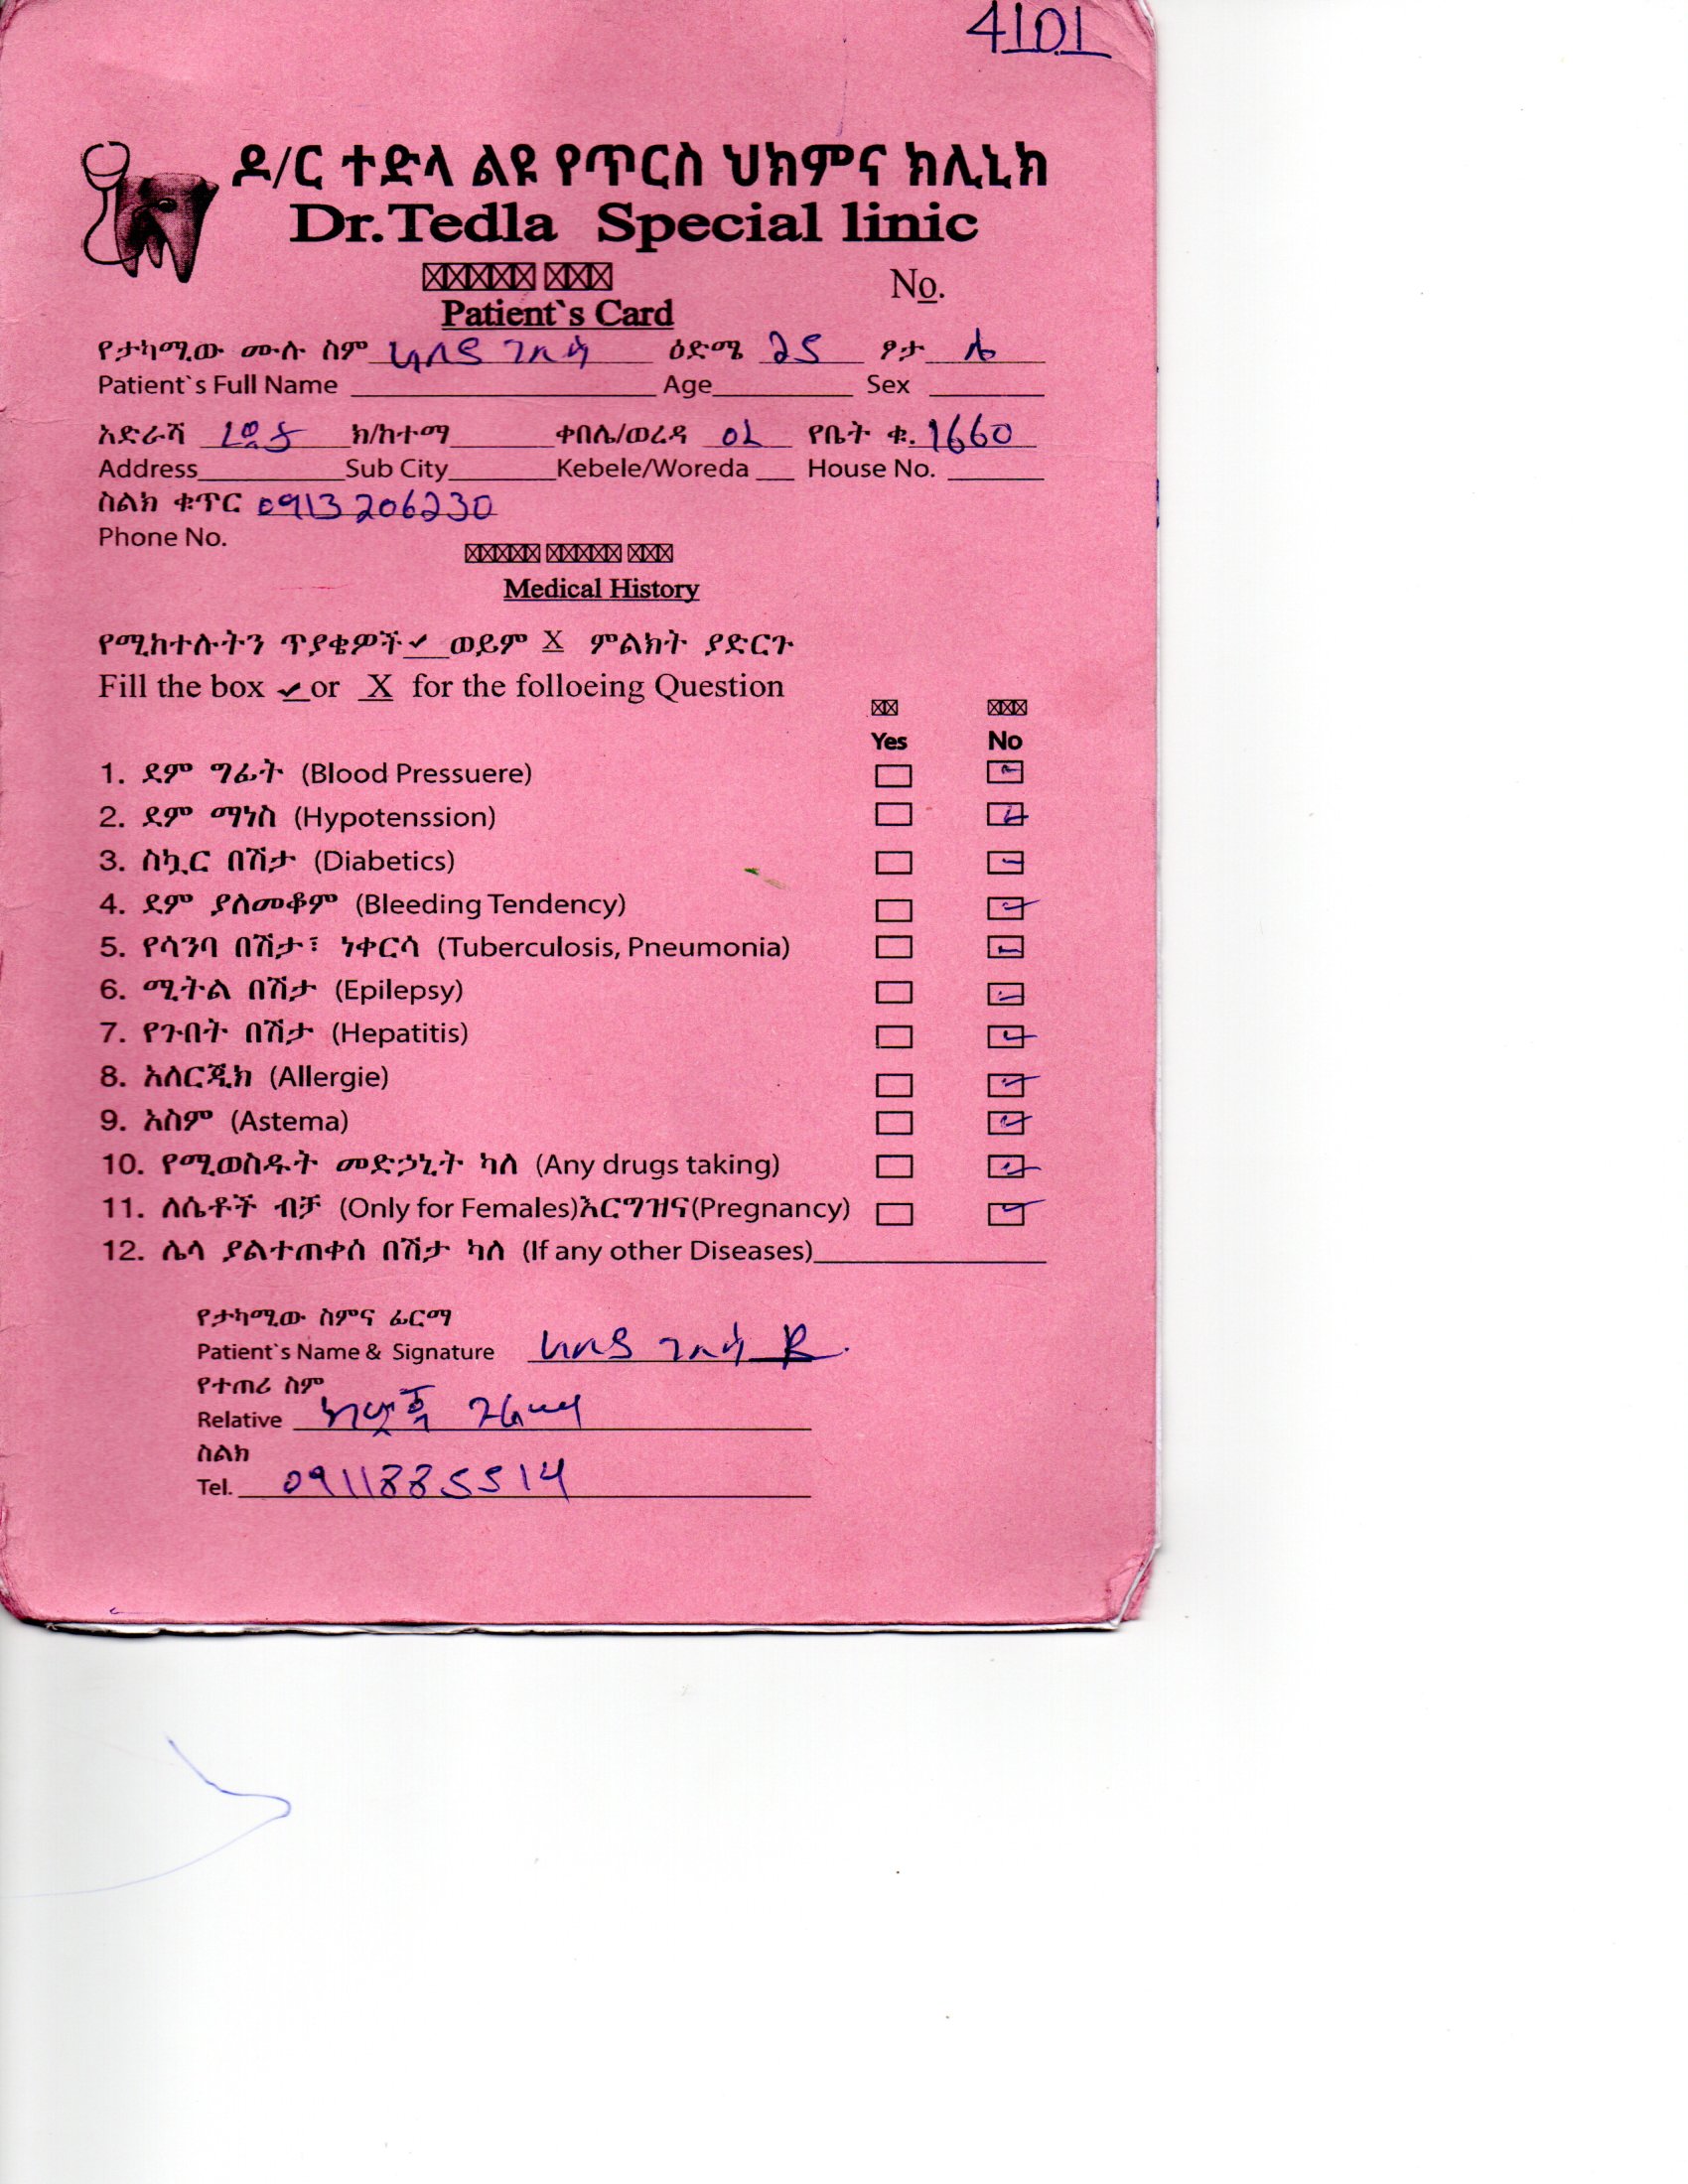 4101
ዶ/ር ተድላ ልዩ የጥርስ ህክምና ክሊኒክ
Dr.Tedla Special linic
No.
Patient`s Card
የታካሚው ሙሉ ስም ዕድሜ 25 ፆታ ሴ
Patient`s Full Name Age Sex
አድራሻ ክ/ከተማ ቀበሌ/ወረዳ የቤት ቁ. 1660
Address Sub City Kebele/Woreda House No.
ስልክ ቁጥር 0913206230
Phone No.
Medical History
የሚከተሉትን ጥያቄዎች ✓ ወይም X ምልክት ያድርጉ
Fill the box ✓ or X for the folloeing Question
Yes No
1. ደም ግፊት (Blood Pressuere)
2. ደም ማነስ (Hypotenssion)
3. ስኳር በሽታ (Diabetics)
4. ደም ያለመቆም (Bleeding Tendency)
5. የሳንባ በሽታ፣ ነቀርሳ (Tuberculosis, Pneumonia)
6. ሚትል በሽታ (Epilepsy)
7. የጉበት በሽታ (Hepatitis)
8. አለርጂክ (Allergie)
9. አስም (Astema)
10. የሚወስዱት መድኃኒት ካለ (Any drugs taking)
11. ለሴቶች ብቻ (Only for Females)እርግዝና(Pregnancy)
12. ሌላ ያልተጠቀሰ በሽታ ካለ (If any other Diseases)
የታካሚው ስምና ፊርማ
Patient`s Name & Signature
የተጠሪ ስም
Relative
ስልክ
Tel. 0911885514